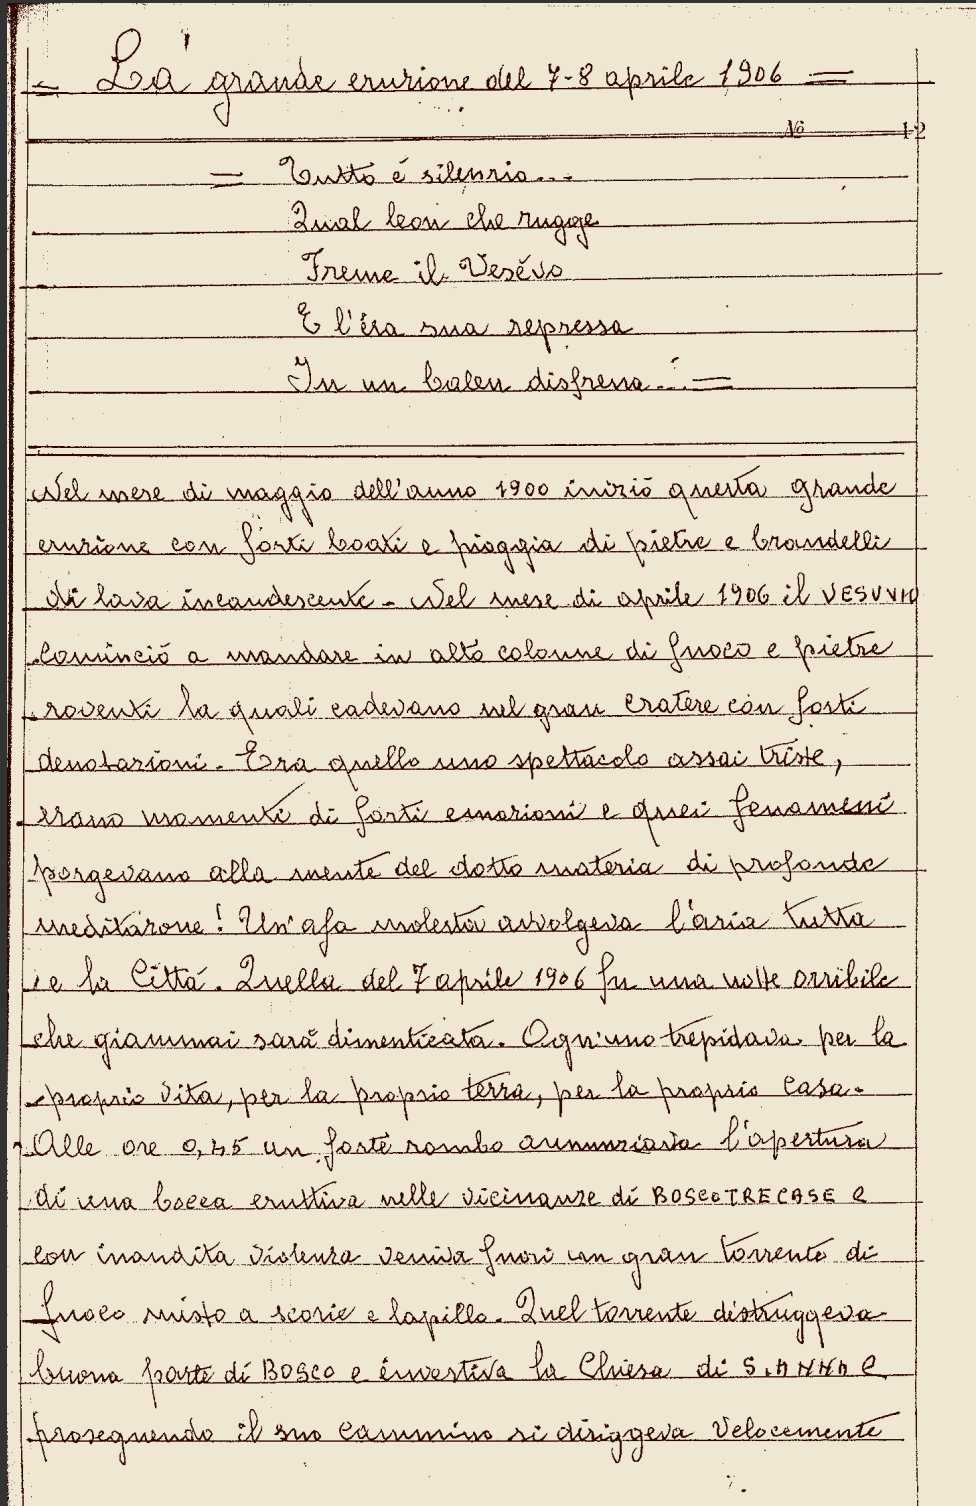 = La' grande eruzione del 7-8 aprile 1906 =
No 12
= Tutto é silenzio...
Qual leon che rugge
Freme il Vesévo
E l'íra sua repressa
In un balen disfrena... =
Nel mese di maggio dell'anno 1900 inizió questa grande
eruzione con forti boati e pioggia di pietre e brandelli
di lava incandescente - Nel mese di aprile 1906 il VESUVIO
Cominció a mandare in alto colonne di fuoco e pietre
roventi la quali cadevano nel gran cratere con forti
denotazioni. Era quello uno spettacolo assai triste,
erano momenti di forti emozioni e quei fenomeni
porgevano alla mente del dotto materia di profonde
meditazone! Un'afa molesta avvolgeva l'aria tutta
e la Cittá. Quella del 7 aprile 1906 fu una notte orribile
che giammai sará dimenticata. Ogn'uno trepidava per la
proprio vita, per la proprio terra, per la proprio casa.
Alle ore 0,45 un forte rombo annunziava l'apertura
di una bocca eruttiva nelle vicinanze di BOSCOTRECASE e
con inaudita violenza veniva fuori un gran torrente di
fuoco misto a scorie e lapillo. Quel torrente distruggeva
buona parte di BOSCO e investiva la Chiesa di S. ANNA e
proseguendo il suo cammino si diriggeva velocemente